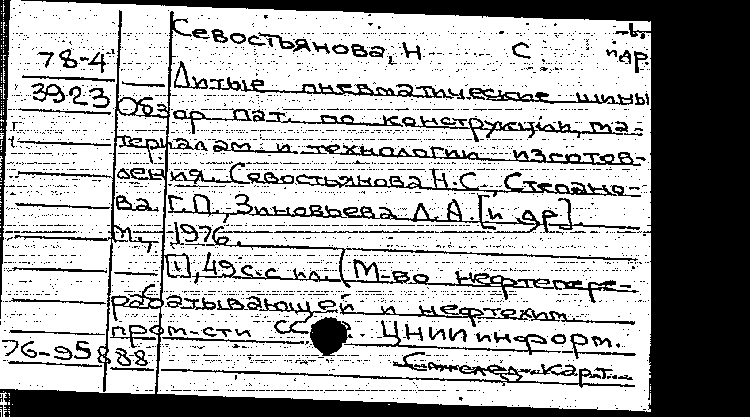 Севостьянова, Н С и др.
78-4
3923
Литые пневматические шины
Обзор пат. по конструкции, ма-
териалам и технологии изготов-
ления. Севостьянова Н.С., Степано-
ва Г.П., Зиновьева Л.А. [и др].
М., 1976.
[1], 49 с. с ил. (М-во нефтепере-
рабатывающей и нефтехим.
пром-сти СС ЦНИИ информ.
76-95888
карт.